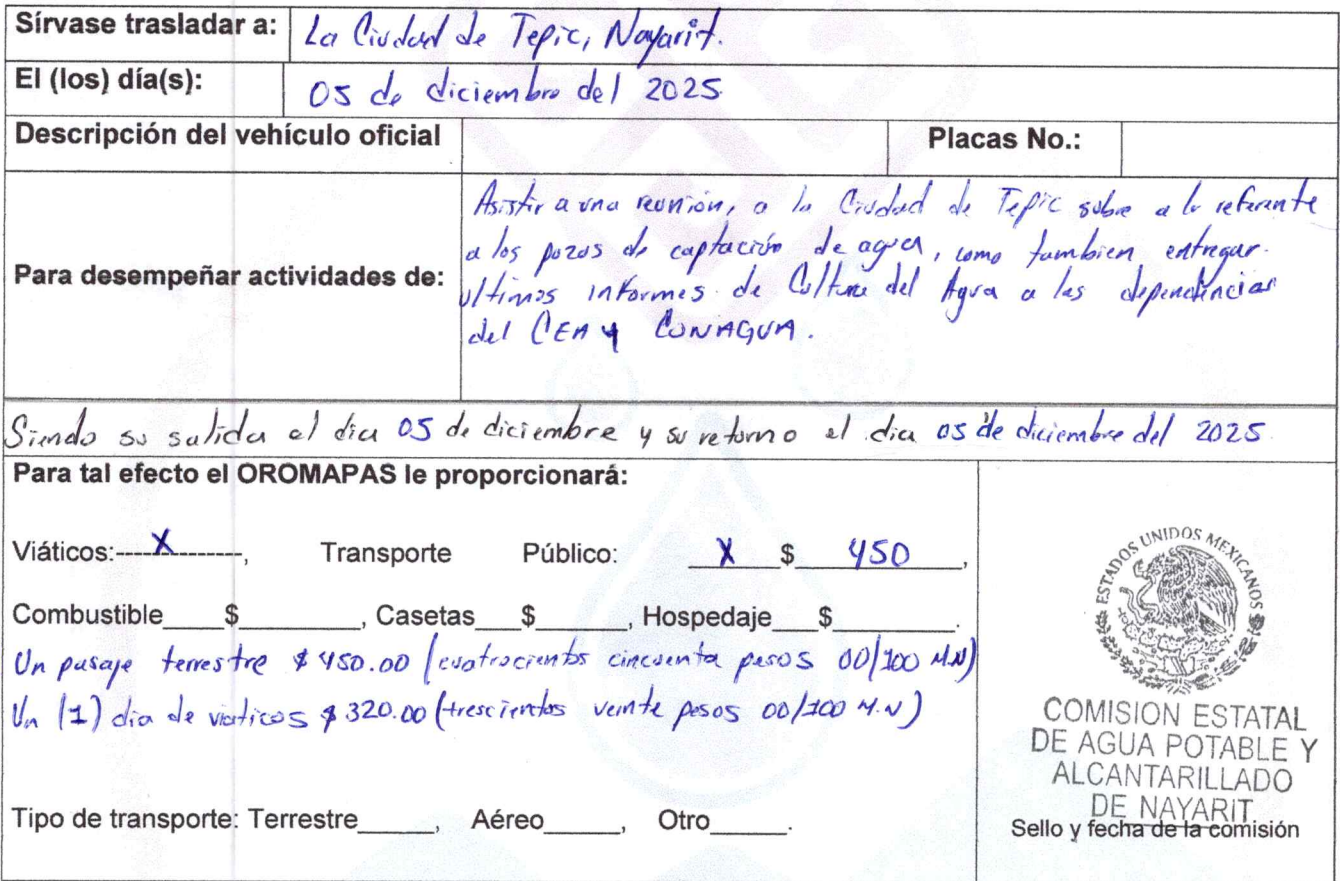 Sírvase trasladar a: La Ciudad de Tepic, Nayarit.
El (los) día(s): 05 de diciembre del 2025
Descripción del vehículo oficial Placas No.:
Asistir a una reunión, a la Ciudad de Tepic sobre a lo referente
a los pozos de captación de agua, como tambien entregar
Para desempeñar actividades de: ultimos informes de Cultura del Agua a las dependencias
del CEA y CONAGUA.
Siendo su salida el dia 05 de diciembre y su retorno el dia 05 de diciembre del 2025.
Para tal efecto el OROMAPAS le proporcionará:
Viáticos:----X---------, Transporte Público: __X__$__450__,
Combustible____$________, Casetas___$______, Hospedaje___$________.
Un pasaje terrestre $450.00 (cuatrocientos cincuenta pesos 00/100 M.N)
Un (1) dia de viaticos $320.00 (trescientos veinte pesos 00/100 M.N)
Tipo de transporte: Terrestre_____, Aéreo_____, Otro_____.
ESTADOS UNIDOS MEXICANOS
COMISION ESTATAL
DE AGUA POTABLE Y
ALCANTARILLADO
DE NAYARIT
Sello y fecha de la comisión